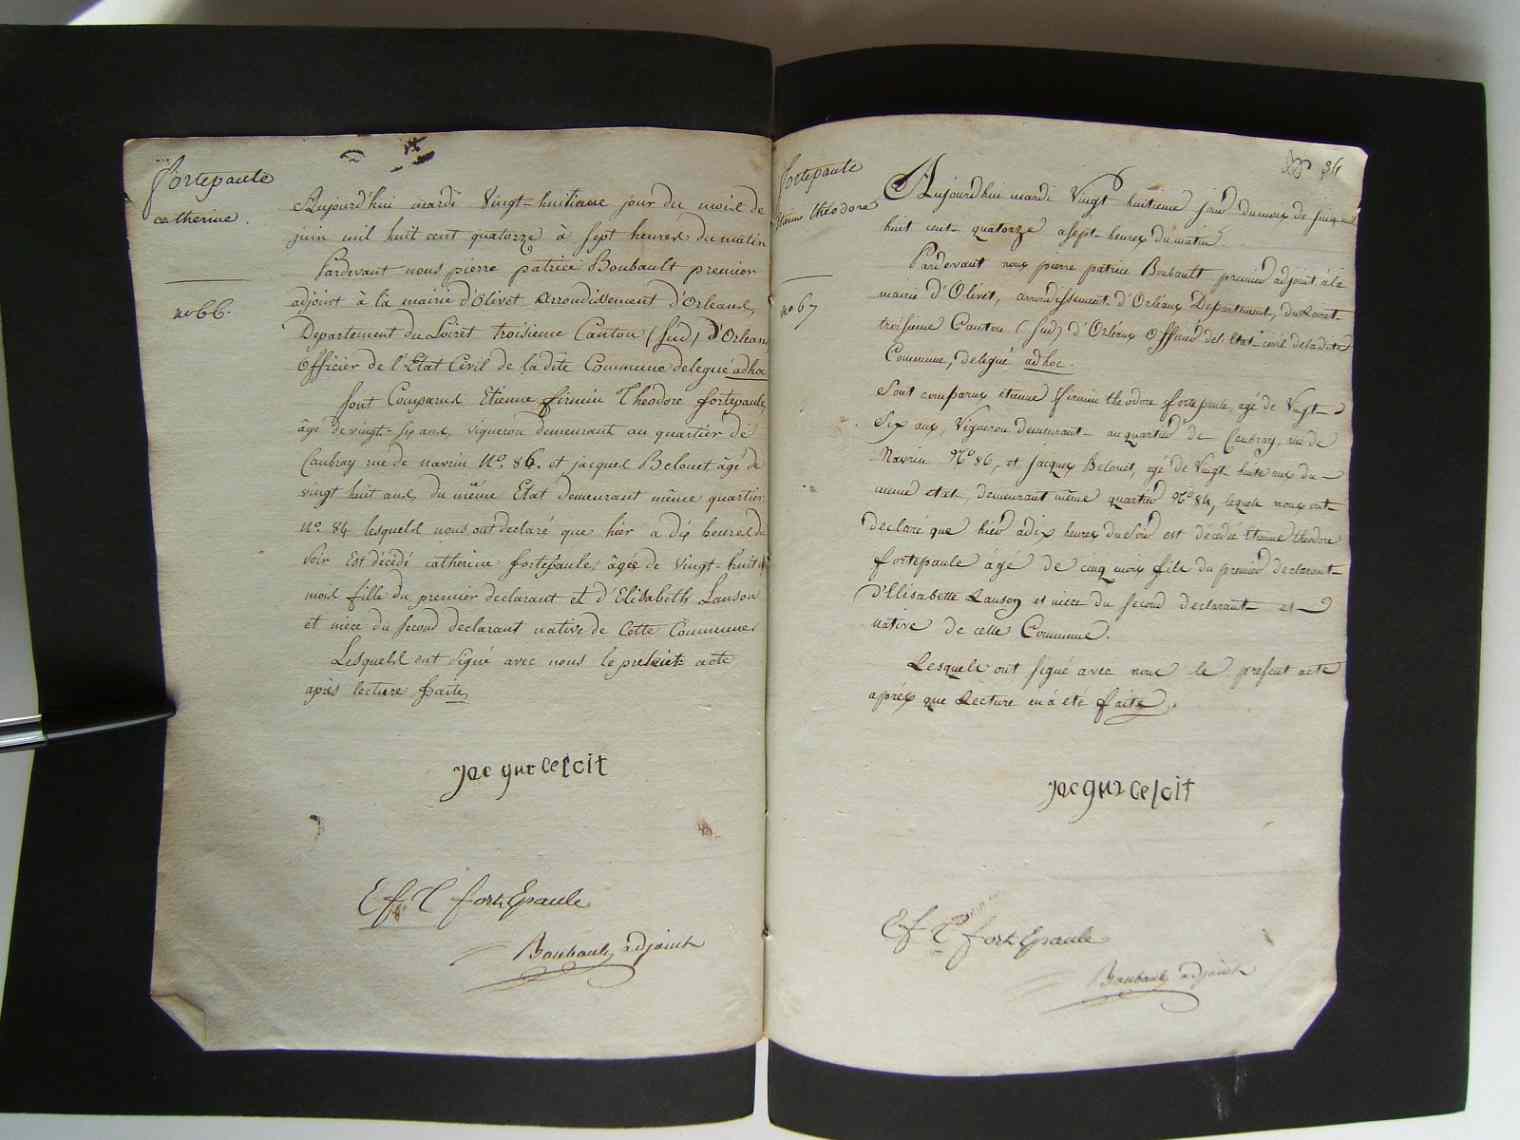 fortepaule
catherine.
no 66.
Aujourd'hui mardi Vingt-huitieme jour du mois de
juin mil huit cent quatorze à sept heures du matin
Pardevant nous pierre patrice Boubault premier
adjoint à la mairie d'Olivet arrondissement d'Orleans,
Departement du Loiret troisieme Canton (sud) d'Orleans
Officier de l'Etat Civil de la dite Commune delegué adhoc
sont Comparus Etienne firmin Theodore fortepaule,
âgé de vingt-six ans, vigneron demeurant au quartier de
Caubray rue de navrin No. 86. et jacques Belouet âgé de
vingt huit ans du même Etat demeurant même quartier
No. 84 lesquels nous ont declaré que hier a dix heures du
soir Est décédé catherine fortepaule, âgée de vingt-huit
mois fille du premier declarant et d'Elisabeth Lanson
et niece du second declarant native de Cette Commune
Lesquels ont signé avec nous le present acte
après lecture faite,
jacque celoit
E f T fortEpaule
Boubault adjoint
34
fortepaule
Etienne theodore
no 67
Aujourd'hui mardi Vingt huitieme jour du mois de juin
huit cent quatorze a sept heures du matin
Pardevant nous pierre patrice Boubault premier adjoint à la
mairie d'Olivet, arrondissement d'Orléans Departement, du Loiret
troisieme Canton (sud) d'Orléans Officier del Etat civil de la dite
Commune, delegué adhoc.
Sont comparus etienne firmin theodore fortepaule, agé de Vingt
Six ans, Vigneron demeurant au quartier de Caubray, rue de
Navrin No 86, et Jacques Belouet, agé de Vingt huit ans du
meme etat, demeurant même quartier No 84, lequels nous ont
declaré que hier a dix heures du soir est decedé Etienne theodore
fortepaule âgé de cinq mois fils du premier declarant
d'Elisabette Lanson et niece du second declarant et
native de cette Commune.
Lesquels ont signé avec nous le present acte
après que Lecture en a été faite.
jacque celoit
E f T fortEpaule
Boubault adjoint